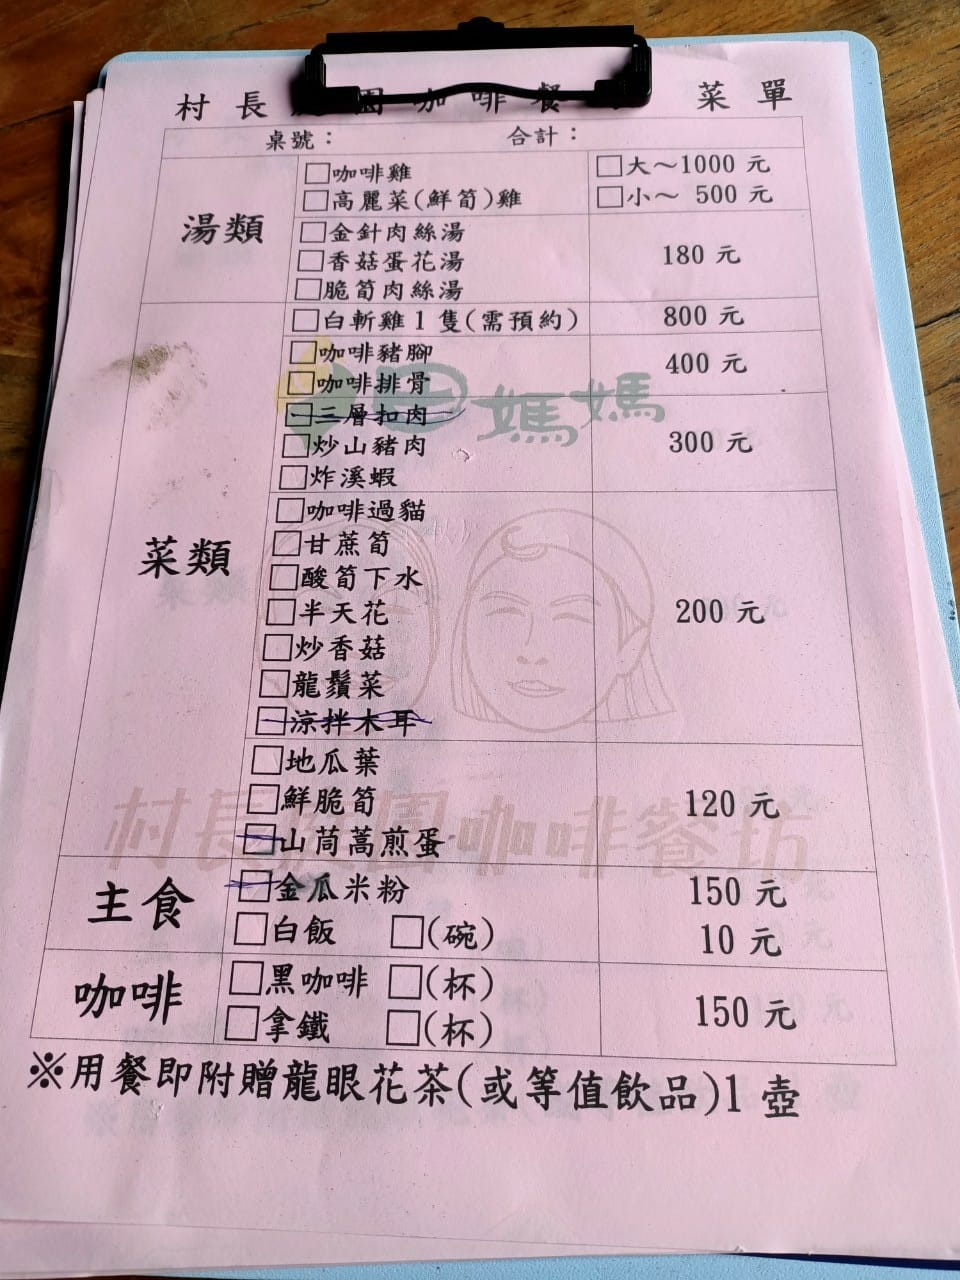 村長 園咖啡餐 菜單
桌號： 合計：
湯類
□咖啡雞 □大～1000 元
□高麗菜(鮮筍)雞 □小～ 500 元
□金針肉絲湯
□香菇蛋花湯 180 元
□脆筍肉絲湯
菜類
□白斬雞 1 隻(需預約) 800 元
□咖啡豬腳 400 元
□咖啡排骨
□三層扣肉
□炒山豬肉 300 元
□炸溪蝦
□咖啡過貓
□甘蔗筍
□酸筍下水
□半天花 200 元
□炒香菇
□龍鬚菜
□涼拌木耳
□地瓜葉
□鮮脆筍 120 元
□山茼蒿煎蛋
主食
□金瓜米粉 150 元
□白飯 □(碗) 10 元
咖啡
□黑咖啡 □(杯) 150 元
□拿鐵 □(杯)
※用餐即附贈龍眼花茶(或等值飲品)1 壺
田媽媽
村長 園咖啡餐坊